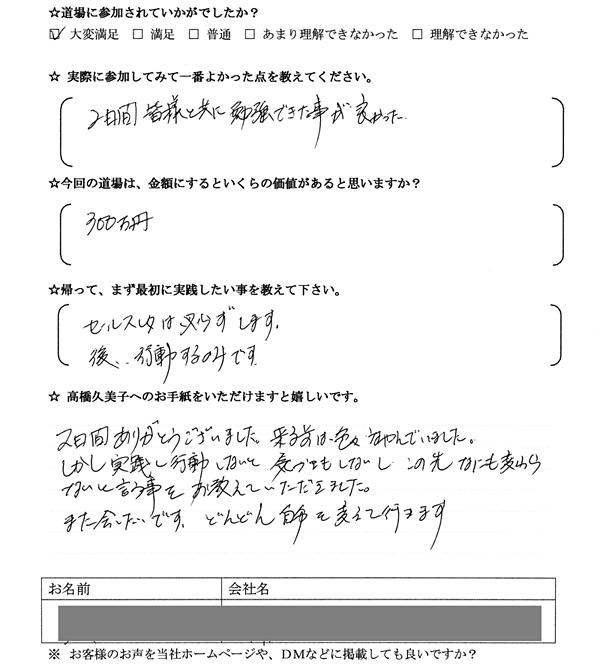 ☆道場に参加されていかがでしたか？
☑ 大変満足 □ 満足 □ 普通 □ あまり理解できなかった □ 理解できなかった
☆ 実際に参加してみて一番よかった点を教えてください。
2日間皆様と共に勉強できた事が良かった.
☆今回の道場は、金額にするといくらの価値があると思いますか？
300万円
☆帰って、まず最初に実践したい事を教えて下さい。
セルスレタは必らずします.
後、行動するのみです
☆ 高橋久美子へのお手紙をいただけますと嬉しいです。
2日間ありがとうございました。来る前は色々なやんでいました。
しかし実践し行動しないと気づきもしないし この先なにも変わら
ないと言う事をお教えていただきました。
また会いたいです。どんどん自分を変えて行きます
お名前 会社名
※ お客様のお声を当社ホームページや、DMなどに掲載しても良いですか？